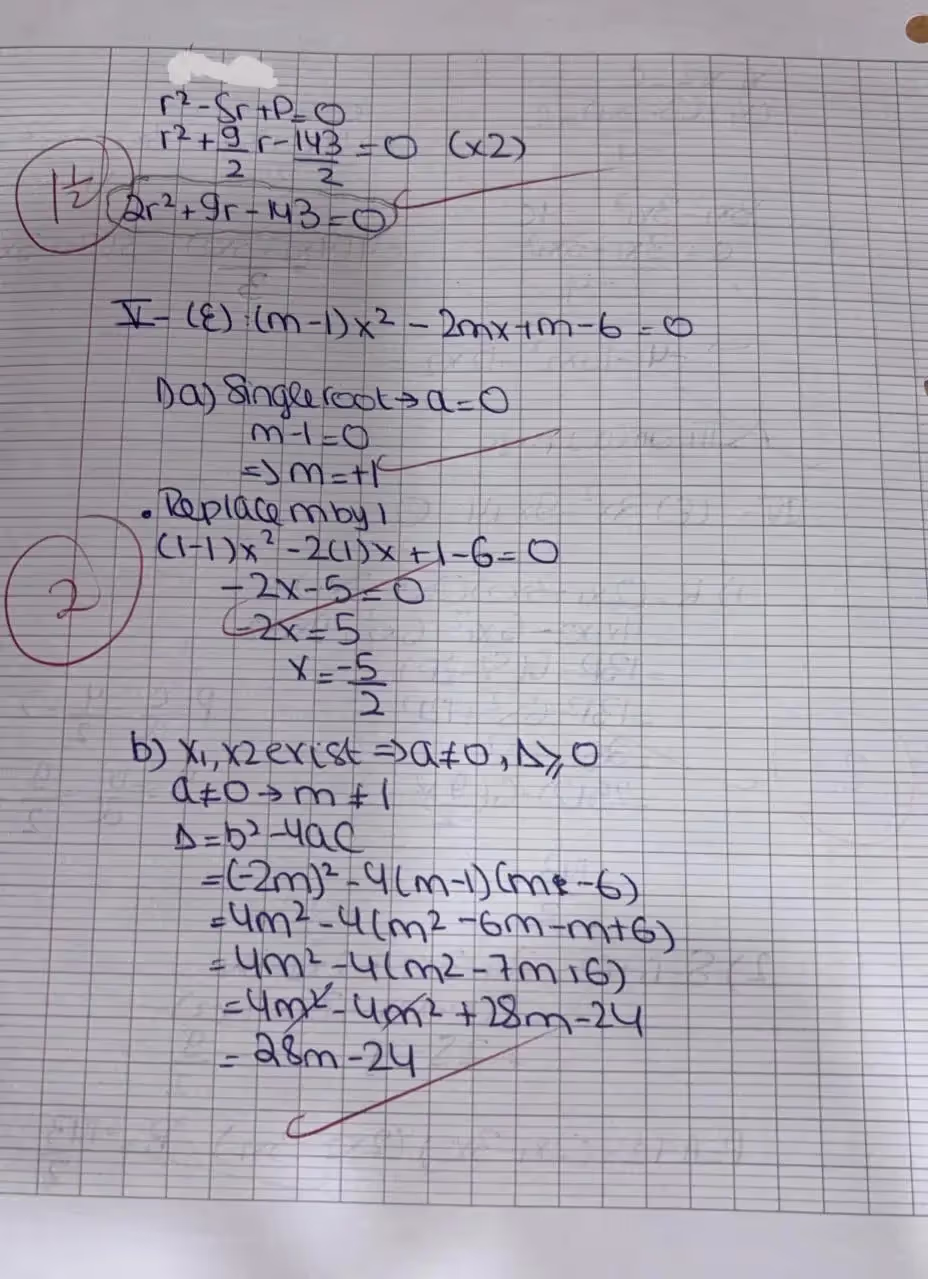 r² - Sr + P = 0
r² + 9/2 r - 143/2 = 0 (x2)
1 1/2
2r² + 9r - 143 = 0
V- (E): (m-1)x² - 2mx + m - 6 = 0
1) a) Single root → a = 0
m - 1 = 0
=> m = +1
. Replace m by 1
(1-1)x² - 2(1)x + 1 - 6 = 0
2
-2x - 5 = 0
-2x = 5
x = -5/2
b) x1, x2 exist => a ≠ 0, Δ ⩾ 0
a ≠ 0 → m ≠ 1
Δ = b² - 4ac
= (-2m)² - 4(m-1)(m - 6)
= 4m² - 4(m² - 6m - m + 6)
= 4m² - 4(m² - 7m + 6)
= 4m² - 4m² + 28m - 24
= 28m - 24